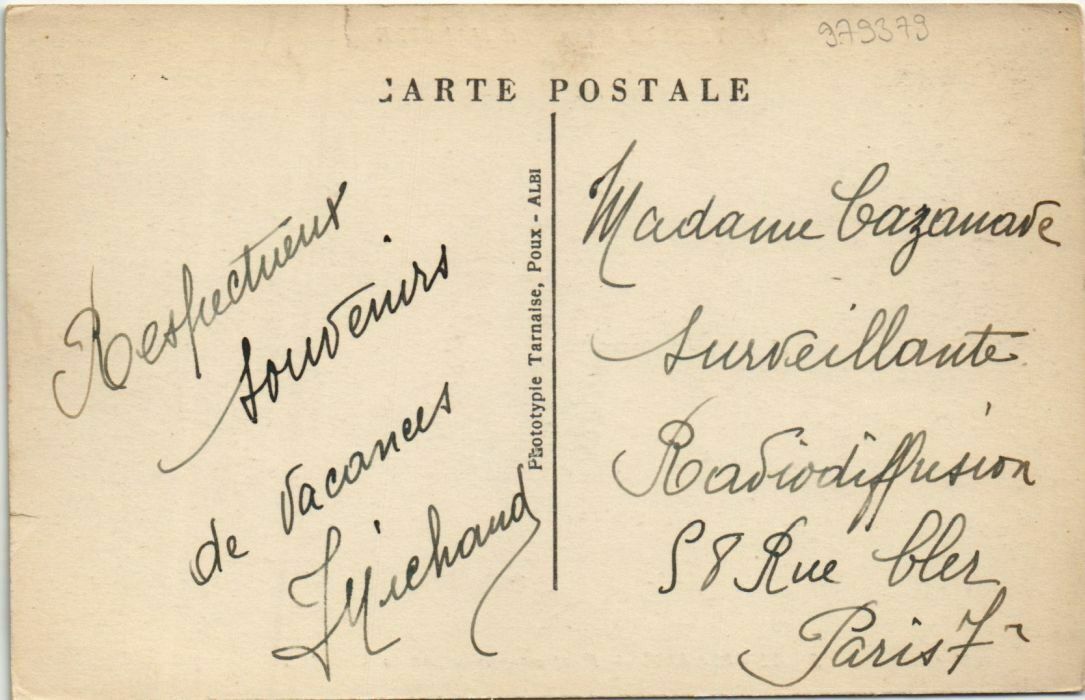 979379
CARTE POSTALE
Respectueux
souvenirs
de vacances
Michaud
Phototypie Tarnaise, Poux - ALBI
Madame Cazanave
Surveillante
Radiodiffusion
58 Rue Cler
Paris 7e